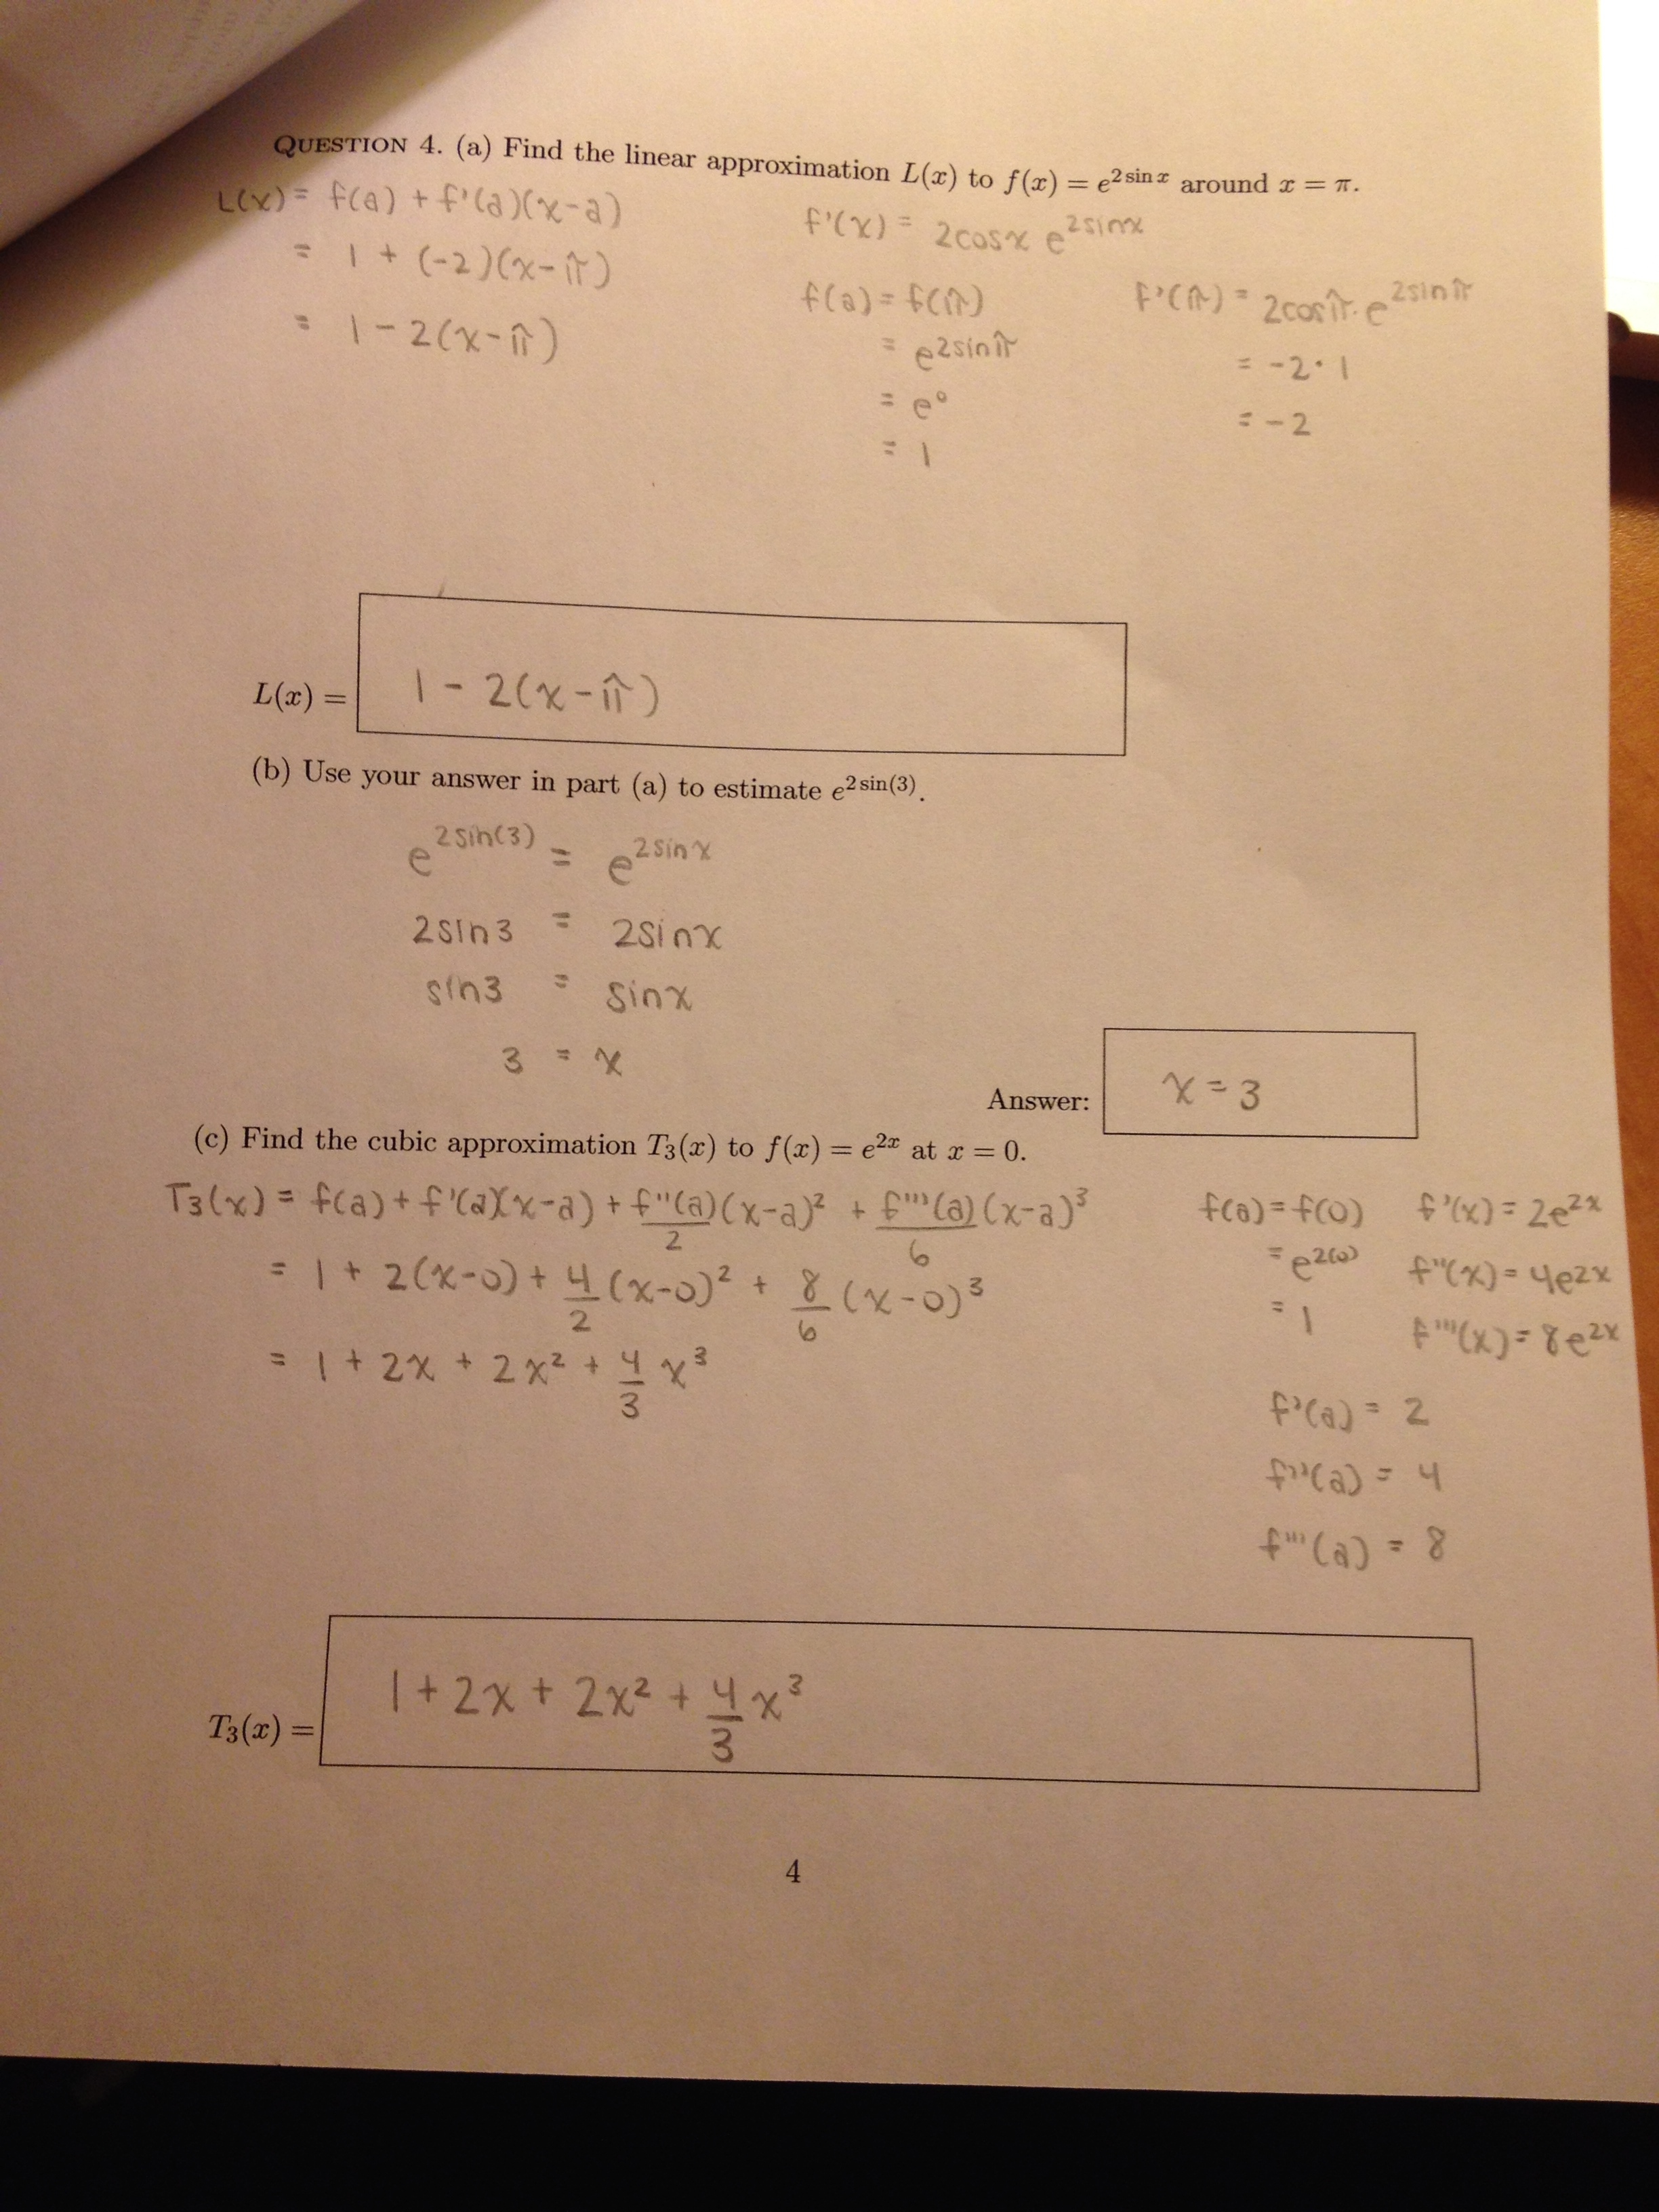 QUESTION 4. (a) Find the linear approximation L(x) to f(x) = e^{2 sin x} around x = π.
L(x) = f(a) + f'(a)(x-a)
= 1 + (-2)(x-π)
= 1 - 2(x-π)
f'(x) = 2cosx e^{2sinx}
f(a) = f(π)
= e^{2sinπ}
= e^0
= 1
f'(π) = 2cosπ · e^{2sinπ}
= -2 · 1
= -2
L(x) = 1 - 2(x-π)
(b) Use your answer in part (a) to estimate e^{2 sin(3)}.
e^{2sin(3)} = e^{2sinx}
2sin3 = 2sinx
sin3 = sinx
3 = x
Answer: x = 3
(c) Find the cubic approximation T₃(x) to f(x) = e^{2x} at x = 0.
T₃(x) = f(a) + f'(a)(x-a) + f''(a)/2 (x-a)² + f'''(a)/6 (x-a)³
= 1 + 2(x-0) + 4/2 (x-0)² + 8/6 (x-0)³
= 1 + 2x + 2x² + 4/3 x³
f(a) = f(0)
= e^{2(0)}
= 1
f'(x) = 2e^{2x}
f''(x) = 4e^{2x}
f'''(x) = 8e^{2x}
f'(a) = 2
f''(a) = 4
f'''(a) = 8
T₃(x) = 1 + 2x + 2x² + 4/3 x³
4